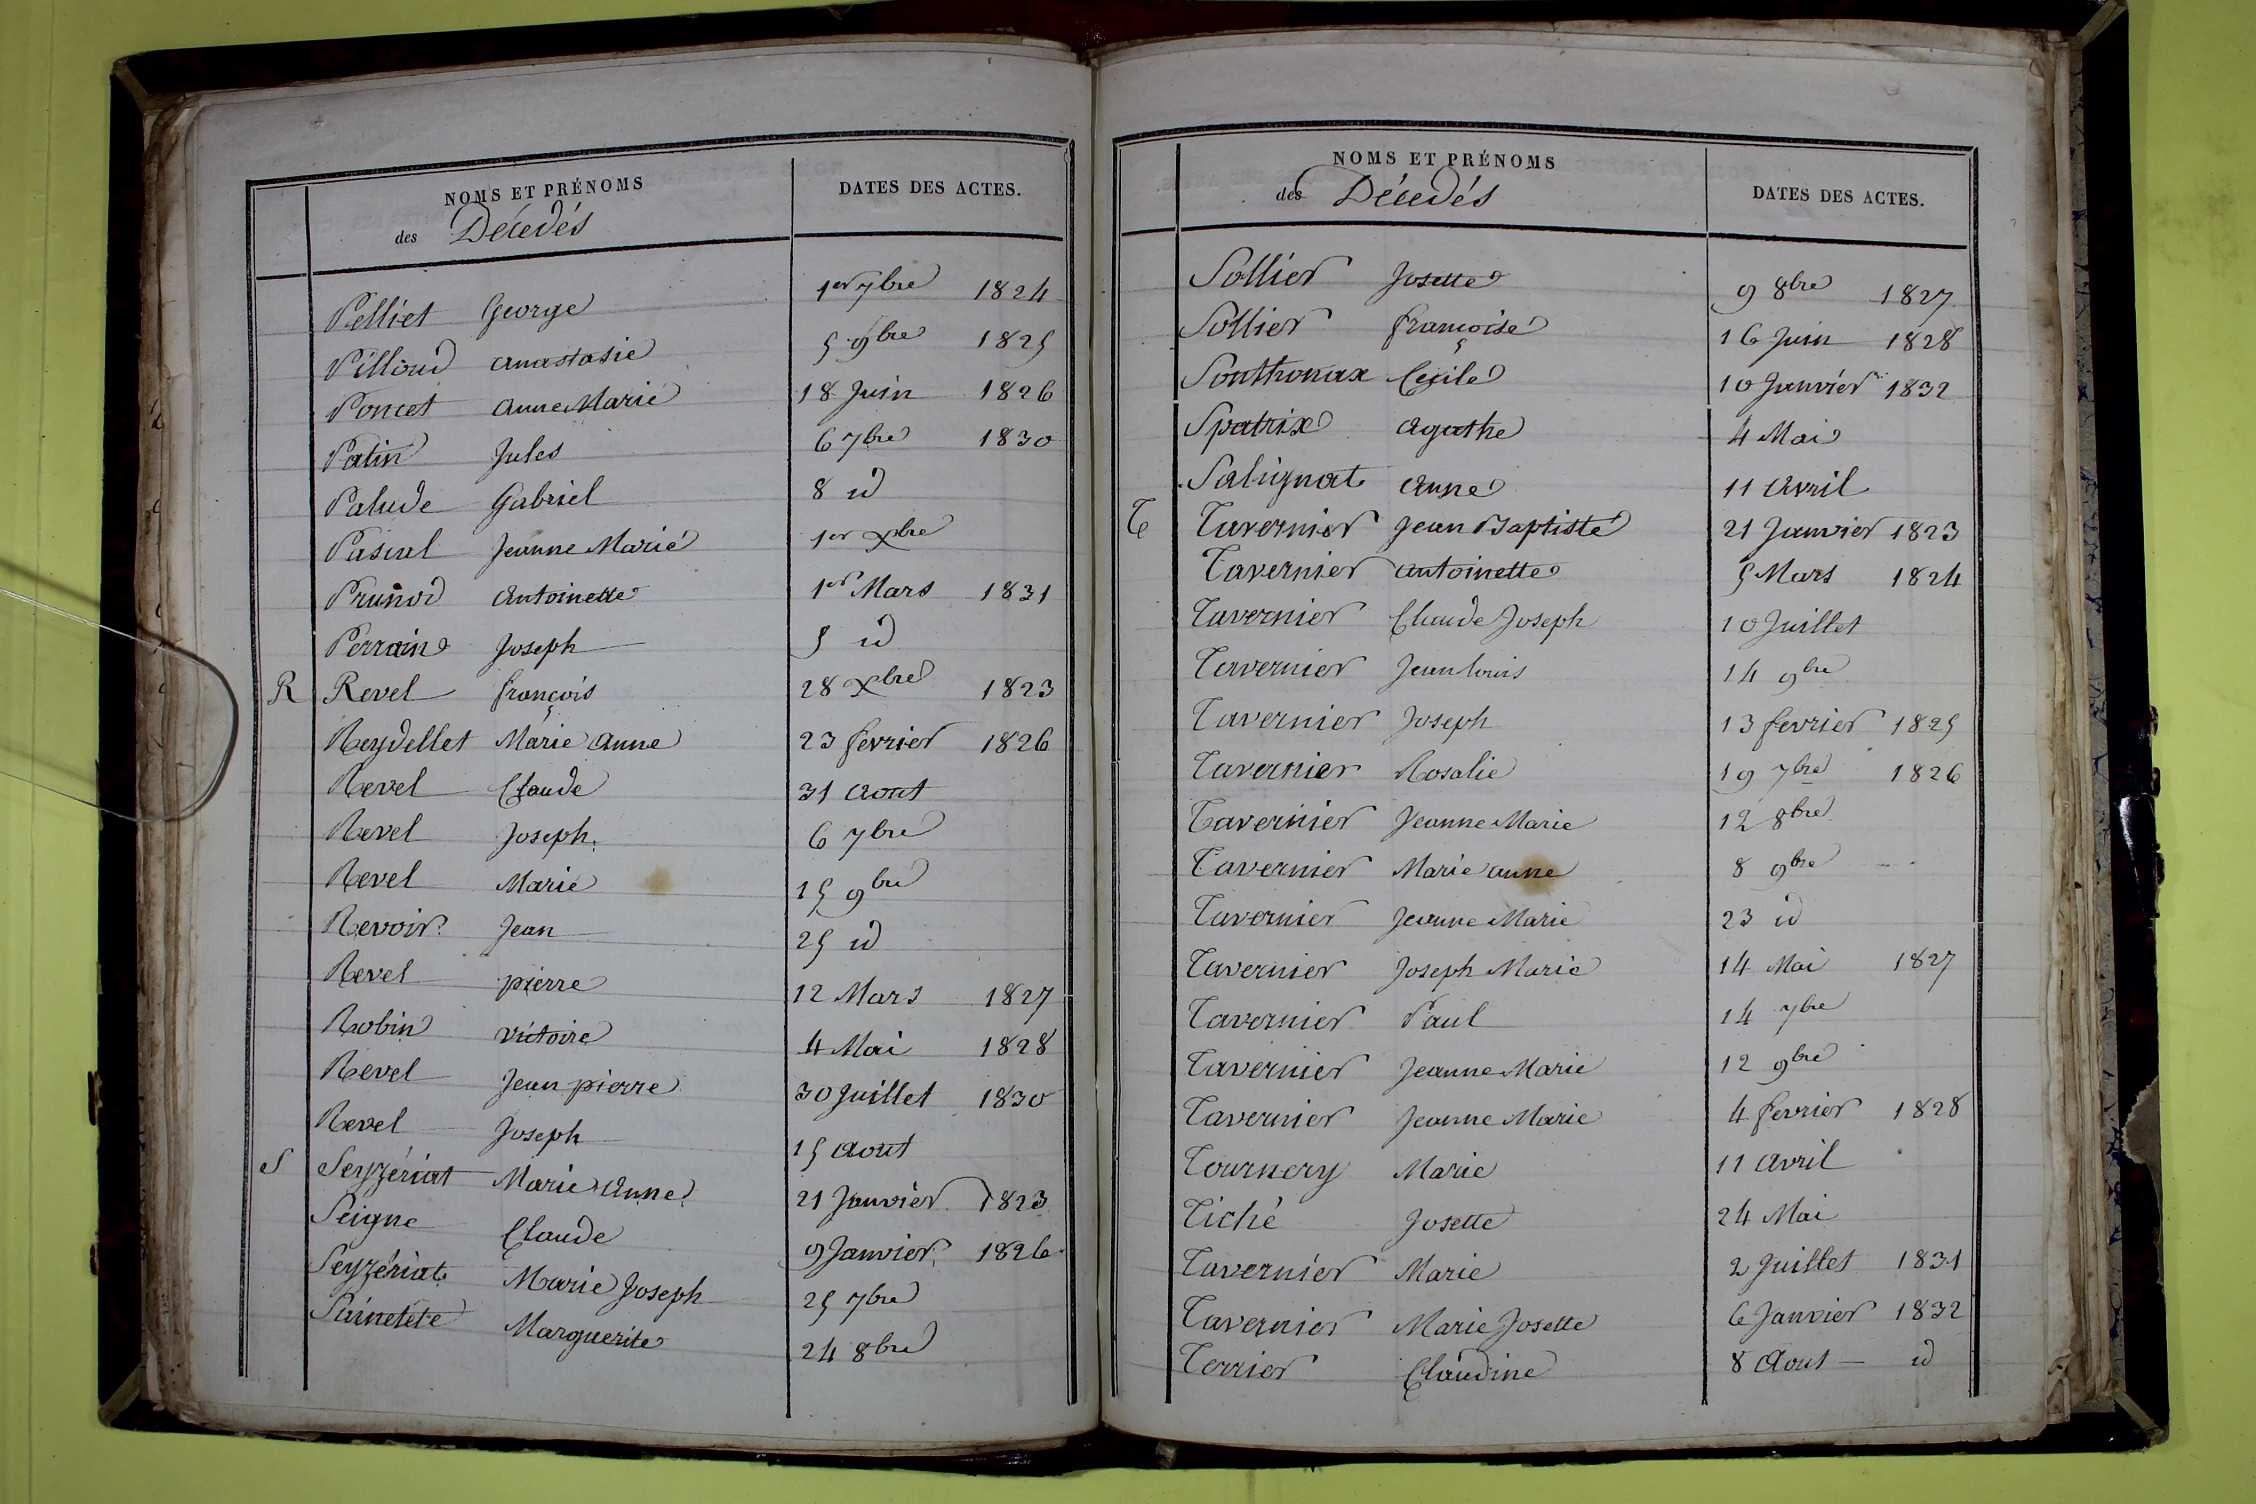 NOMS ET PRÉNOMS DATES DES ACTES.
des Décédés
Pelliet George 1er 7bre 1824
Pilloud anastasie 5 9bre 1825
Poncet anne Marie 18 Juin 1826
Patin Jules 6 7bre 1830
Palude Gabriel 8 id
Pascal Jeanne Marie 1er Xbre
Prunod antoinette 1er Mars 1831
Perrain Joseph 5 id
R Revel françois 28 Xbre 1823
Reydellet Marie anne 23 fevrier 1826
Revel Claude 31 aout
Revel Joseph. 6 7bre
Revel Marie 15 9bre
Revoir Jean 25 id
Revel pierre 12 Mars 1827
Robin victoire 4 Mai 1828
Revel Jean pierre 30 Juillet 1830
Revel Joseph 15 aout
S Seyzériat Marie anne 21 Janvier 1823
Seigne Claude 9 Janvier 1826
Seyzériat Marie Joseph 25 7bre
Painetete Marguerite 24 8bre
NOMS ET PRÉNOMS DATES DES ACTES.
des Décédés
Sollier Josette 9 8bre 1827
Sollier françoise 16 Juin 1828
Sonthonax Cecile 10 Janvier 1832
Spatrix agathe 4 Mai
Salignat anne 11 avril
T Tavernier Jean Baptiste 21 Janvier 1823
Tavernier antoinette 5 Mars 1824
Tavernier Claude Joseph 10 Juillet
Tavernier Jean louis 14 9bre
Tavernier Joseph 13 fevrier 1825
Tavernier Rosalie 19 7bre 1826
Tavernier Jeanne Marie 12 8bre
Tavernier Marie anne 8 9bre
Tavernier Jeanne Marie 23 id
Tavernier Joseph Marie 14 Mai 1827
Tavernier Paul 14 7bre
Tavernier Jeanne Marie 12 9bre
Tavernier Jeanne Marie 4 fevrier 1828
Tournery Marie 11 avril
Tiché Josette 24 Mai
Tavernier Marie 2 Juillet 1831
Tavernier Marie Josette 6 Janvier 1832
Terrier Claudine 8 aout id